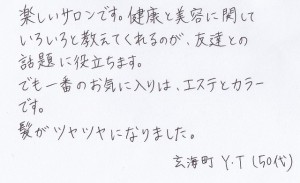 楽しいサロンです。健康と美容に関して
いろいろと教えてくれるのが、友達との
話題に役立ちます。
でも一番のお気に入りは、エステとカラー
です。
髪がツヤツヤになりました。
玄海町 Y.T (50代)